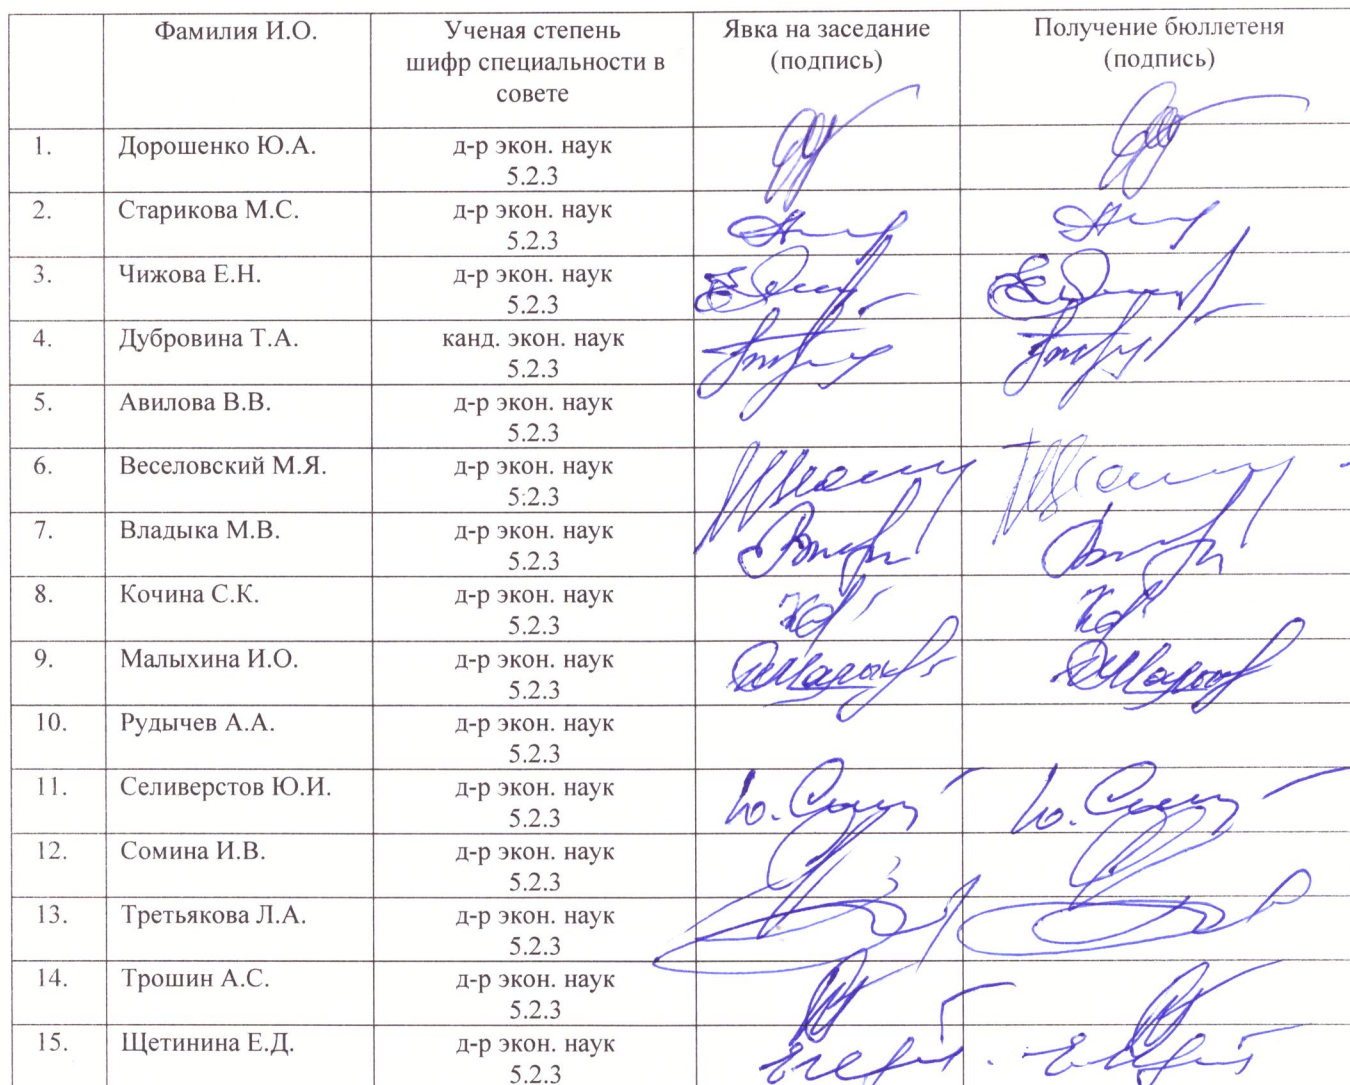 Фамилия И.О.
Ученая степень
шифр специальности в
совете
Явка на заседание
(подпись)
Получение бюллетеня
(подпись)
1. Дорошенко Ю.А. д-р экон. наук
5.2.3
2. Старикова М.С. д-р экон. наук
5.2.3
3. Чижова Е.Н. д-р экон. наук
5.2.3
4. Дубровина Т.А. канд. экон. наук
5.2.3
5. Авилова В.В. д-р экон. наук
5.2.3
6. Веселовский М.Я. д-р экон. наук
5:2.3
7. Владыка М.В. д-р экон. наук
5.2.3
8. Кочина С.К. д-р экон. наук
5.2.3
9. Малыхина И.О. д-р экон. наук
5.2.3
10. Рудычев А.А. д-р экон. наук
5.2.3
11. Селиверстов Ю.И. д-р экон. наук
5.2.3
12. Сомина И.В. д-р экон. наук
5.2.3
13. Третьякова Л.А. д-р экон. наук
5.2.3
14. Трошин А.С. д-р экон. наук
5.2.3
15. Щетинина Е.Д. д-р экон. наук
5.2.3